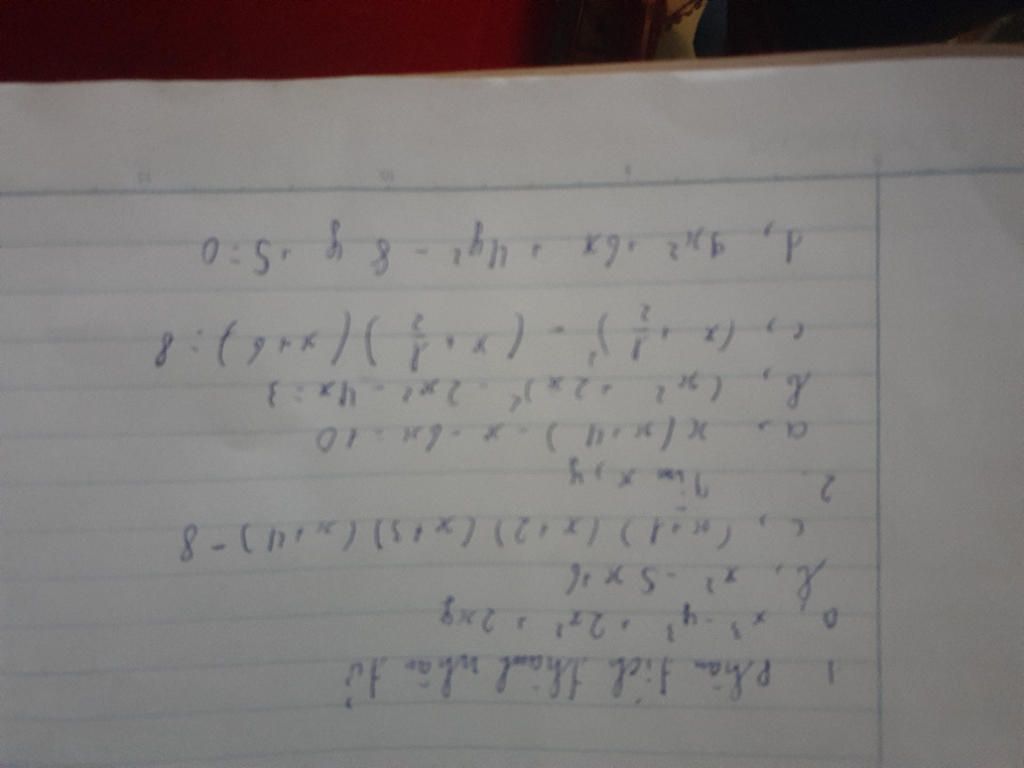 1 Phân tích thành nhân tử
a, x³ - y³ + 2x² + 2xy
b, x² - 5x + 6
c, (x+1)(x+2)(x+3)(x+4) - 8
2. Tìm x, y
a, x(x+4) - x - 6x = 10
b, (x² + 2x)² - 2x² - 4x = 3
c, (x + 1/2)² - (x + 1/2)(x+6) = 8
d, 9x² + 6x + 4y² - 8y + 5 = 0